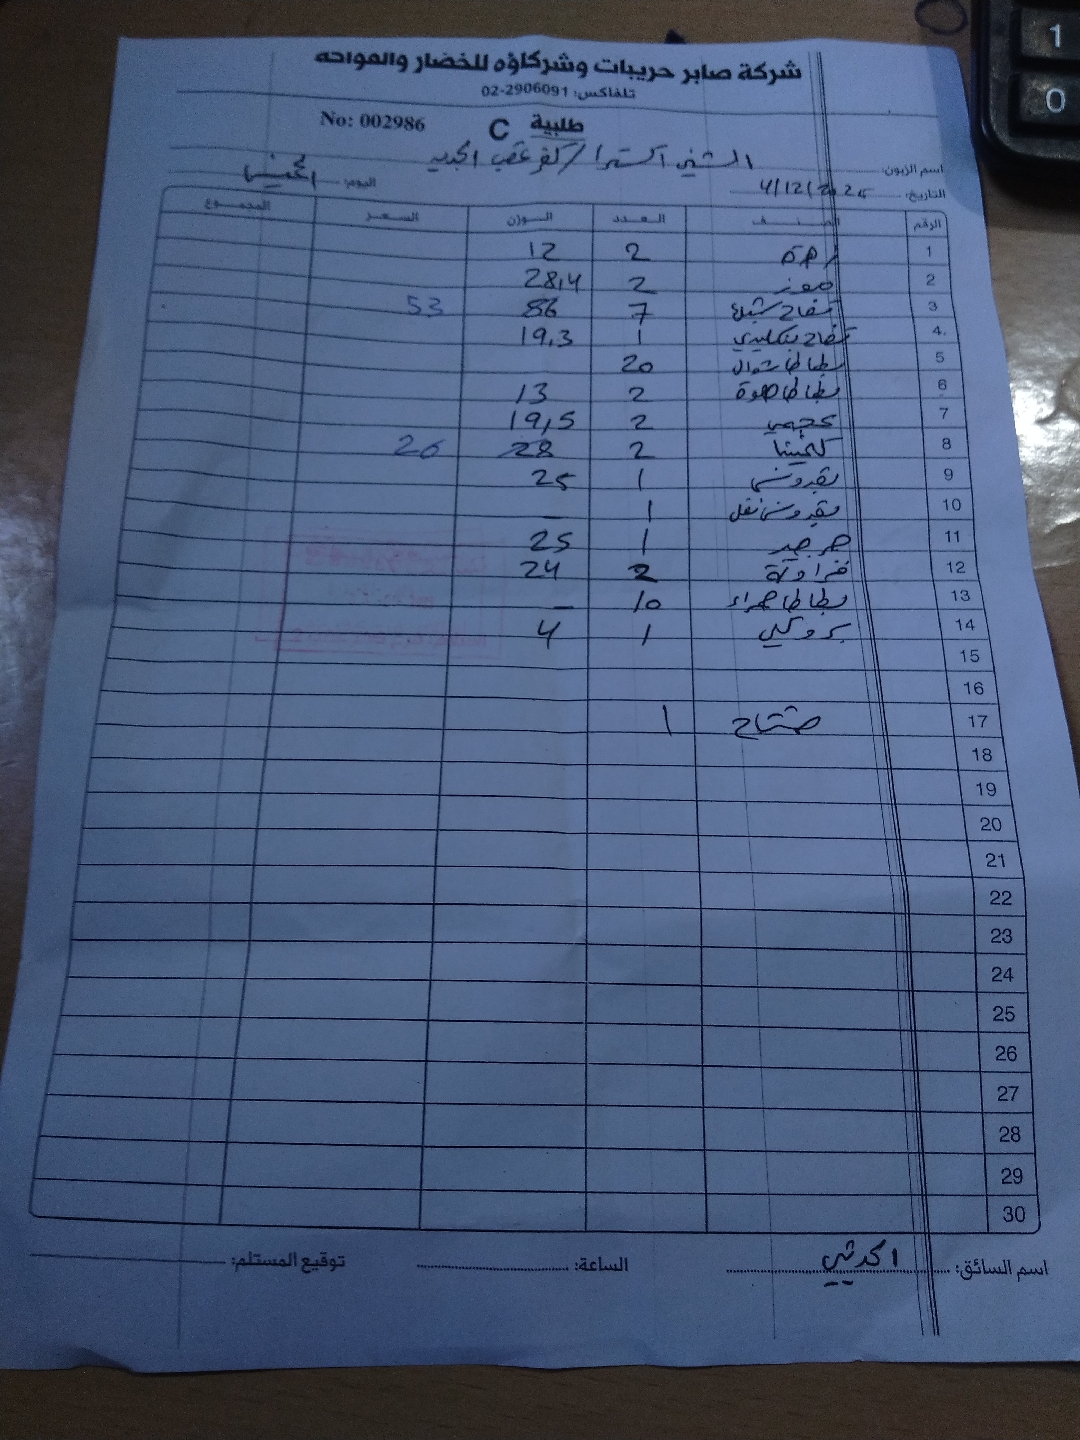 شركة صابر حريبات وشركاؤه للخضار والفواكه
تلفاكس: 02-2906091
No: 002986 C طلبية
اسم الزبون: الشني اكسترا / كفر عقب الجديد
التاريخ: 4/12/2025 اليوم: الخميس
الرقم الصنف العدد الوزن السعر المجموع
1 زهرة 2 12
2 موز 2 28,4
3 تفاح 7 56 53
4 تفاح سكليدي 1 19,3
5 بطاطا شوال 20
6 بطاطا حلوة 2 13
7 عجمي 2 19,5
8 كلمنتينا 2 28 26
9 بقدونس 1 25
10 بقدونس نقل 1 –
11 جرجير 1 25
12 فراولة 2 24
13 بطاطا حمراء 10 –
14 بروكلي 1 4
15
16
17 1
18
19
20
21
22
23
24
25
26
27
28
29
30
اسم السائق: الساعة: توقيع المستلم:
1
0